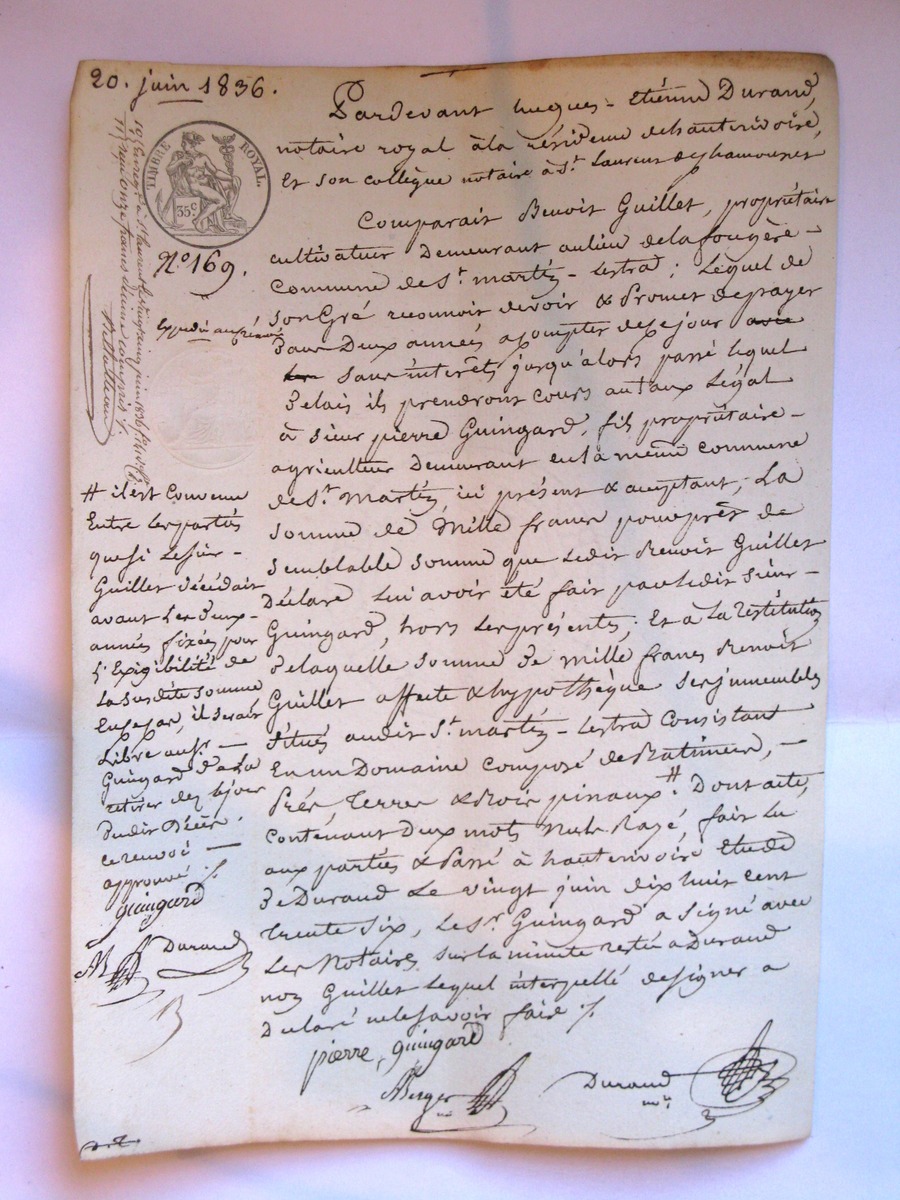 20. juin 1836.
TIMBRE ROYAL.
35c
N° 169.
Pardevant hugues-étiénne Durand,
notaire royal à la résidence dehauterivoire,
Et son collègue notaire à St. Laurent de chamousset
Comparait Benoit Guillet, propriétaire
cultivateur Demeurant aulieu delafougère -
Commune de St. martin-Lestra; Lequel de
son Gré reconnoit devoir & Promet depayer
Dans Deux années acompter dece jour
sans intérêts jusqu'alors passé lequel
Delais ils prendront cours autaux Légal
à sieur pierre Guingard, fils propriétaire-
agriculteur Demeurant enla même commune
de St. Martin, ici présent & acceptant; La
somme de Mille francs pour prêt de
semblable somme que Ledit Benoit Guillet
Déclare Lui avoir été fait par Ledit sieur -
Guingard, hors les présentes; Et à La restitution
Delaquelle somme De mille francs Benoit
Guillet affecte & hypothèque ses immeubles
situés audit St. martin-Lestra Consistant
En un Domaine composé de Batiments, -
Prés Terres & Bois pinaux # Dont acte,
contenant Deux mots Nuls Rayé, fait Lu
aux parties & Passé à hauterivoire Etude
De Durand Le vingt juin dix huit cent
trente six, Le Sr. Guingard a signé avec
Les Notaires sur la minute restée a Durand
non Guillet Lequel interpellé designer a
Déclaré nelesavoir faire ./.
pierre, guingard
Berger
Durand
# il est Convenu
Entre les parties
que si Le sieur -
Guillet Décédait
avant Les Deux -
années fixées pour
L'Exigibilité de
La susdite somme
En ce cas, il serait
Libre au sr. -
Guingard De La
retirer dès le jour
Dudit Décès.
ce renvoi -
approuvé ./.
guingard
Durand